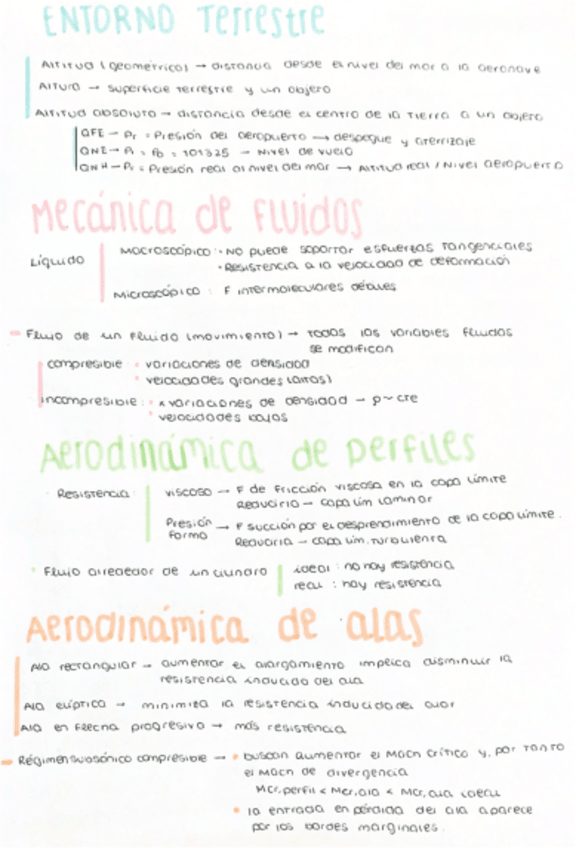 ENTORNO Terrestre
Altitud (geométrico) → distancia desde el nivel del mar a la aeronave
Altura → superficie terrestre y un objeto
Altitud absoluta → distancia desde el centro de la tierra a un objeto
QFE → Pr = Presión del aeropuerto → despegue y aterrizaje
QNE → Pr = Po = 101325 → Nivel de vuelo
QNH → Pr = Presión real al nivel del mar → Altitud real / Nivel aeropuerto
Mecánica de Fluidos
Líquido
Macroscópico: · No puede soportar esfuerzos tangenciales
· Resistencia a la velocidad de deformación
Microscópico: F intermoleculares débiles
Flujo de un fluido (movimiento) → todas las variables fluidas
se modifican
compresible: · variaciones de densidad
· velocidades grandes (altas)
incompresible: · x variaciones de densidad → ρ~cte
· velocidades bajas
Aerodinámica de perfiles
Resistencia
viscoso → F de fricción viscosa en la capa límite
Reducirla → capa lím laminar
Presión → F succión por el desprendimiento de la capa límite.
Forma
Reducirla → capa lím. turbulenta
· Flujo alrededor de un cilindro
ideal: no hay resistencia
real: hay resistencia
Aerodinámica de alas
Ala rectangular → aumentar el alargamiento implica disminuir la
resistencia inducida del ala
Ala elíptica → minimiza la resistencia inducida del
Ala en flecha progresiva → más resistencia
Régimen subsónico compresible → · buscan aumentar el Mach crítico y, por tanto
el Mach de divergencia
Mcr, perfil < Mcr, ala < Mcr, ala ideal
· la entrada en pérdida del ala aparece
por los bordes marginales.